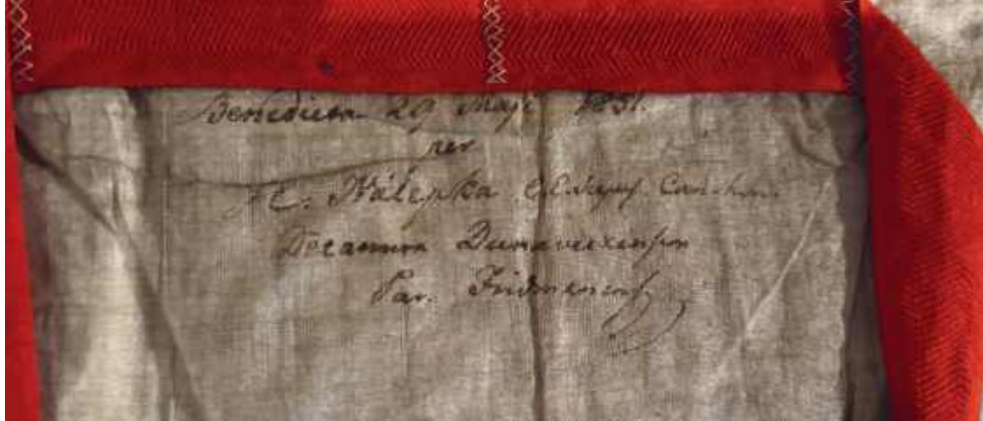 Benedicta 29 Maji 1831.
per
Fr: Nálepka
Decanum Dunavecensem
Par. Fridmanens